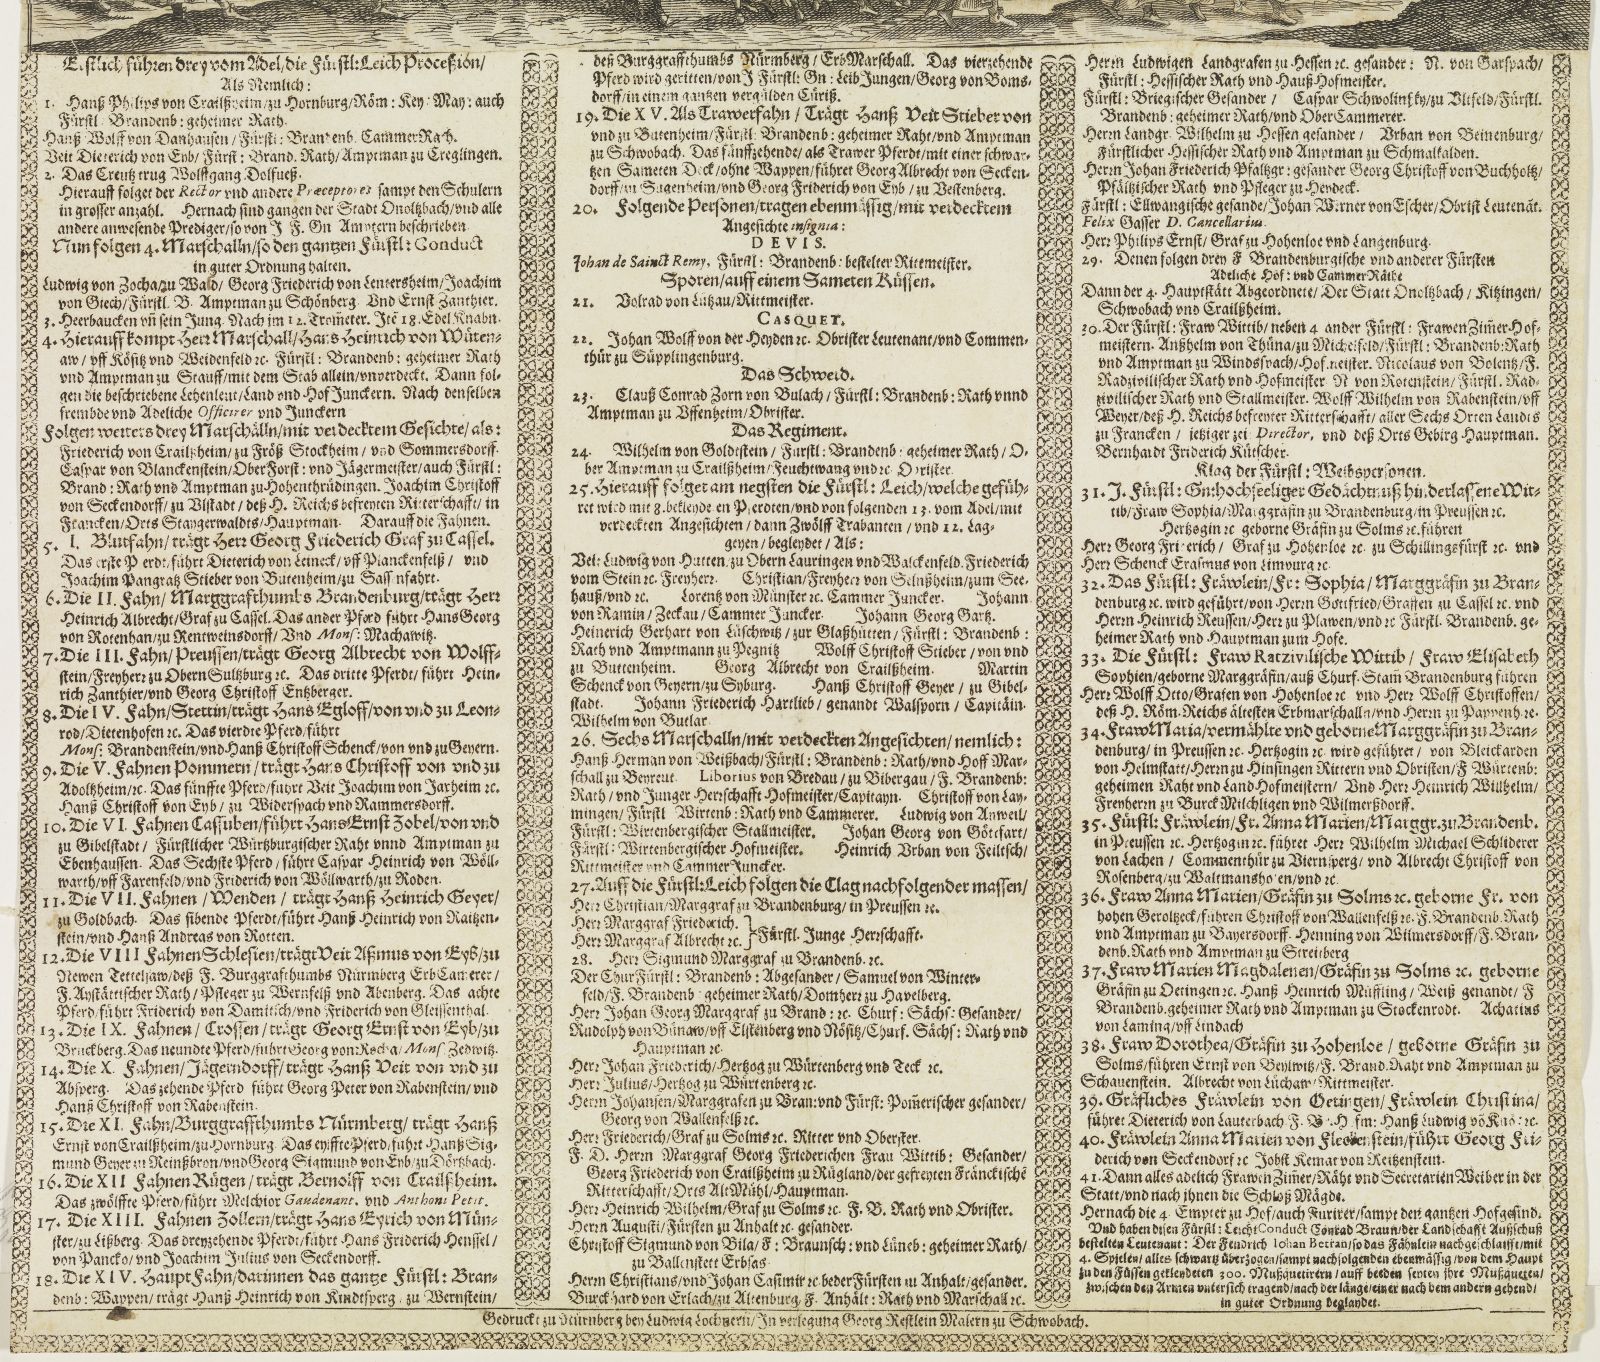 Erstlich führen drey vom Adel/die Fürstl: Leich Procession/
Als Nemlich:
1. Hanß Philips von Crailßheim/zu Hornburg/Röm: Key: May: auch
Fürstl. Brandenb: geheimer Rath.
Hanß Wolff von Danhausen/Fürstl: Brandenb. CammerRath.
Veit Dieterich von Eyb/Fürst: Brand. Rath/Amptman zu Creglingen.
2. Das Creutz trug Wolffgang Dolfueß.
Hierauff folget der Rector vnd andere Præceptores sampt den Schulern
in grosser anzahl. Hernach sind gangen der Stadt Onoltzbach/vnd alle
andere anwesende Prediger/so von J F. Gn Amptern beschrieben
Nun folgen 4. Marschalln/so den gantzen Fürstl: Conduct
in guter Ordnung halten.
Ludwig von Zocha/zu Wald/Georg Friederich von Lentersheim/Joachim
von Giech/Fürstl. B. Amptman zu Schönberg. Vnd Ernst Zanthier.
3. Heerbaucken vñ sein Jung. Nach jm 12. Trom̃eter. Itẽ 18. Edel Knabn.
4. Hierauff kompt Herr Marschall/Hans Heinrich von Wüten-
aw/vff Kösitz vnd Weidenfeld ꝛc. Fürstl: Brandenb: geheimer Rath
vnd Amptman zu Stauff/mit dem Stab allein/vnverdeckt. Dann fol-
gen die beschriebene Lehenleut/Land vnd Hof Junckern. Nach denselben
frembde vnd Adeliche Officirer vnd Junckern
Folgen weiters drey Marschälln/mit verdecktem Gesichte/als:
Friederich von Crailßheim/zu Fröß Stockheim/vnd Sommersdorff.
Caspar von Blanckenstein/Ober Forst: vnd Jägermeister/auch Fürstl:
Brand: Rath vnd Amptman zu Hohenthrüdingen. Joachim Christoff
von Seckendorff/zu Vlstadt/deß H. Reichs befreyten Ritterschafft/in
Francken/Orts Staygerwaldts/Hauptman. Darauff die Fahnen.
5. I. Blutfahn/trägt Herr Georg Friederich Graf zu Cassel.
Das erste Pferdt/führt Dieterich von Leineck/vff Planckenfelß/vnd
Joachim Pangratz Stieber von Butenheim/zu Sassnfahrt.
6. Die II. Fahn/Marggrafthumbs Brandenburg/trägt Herr
Heinrich Albrecht/Graf zu Cassel. Das ander Pferd führt Hans Georg
von Rotenhan/zu Rentweinsdorff/Vnd Mons: Machawitz.
7. Die III. Fahn/Preussen/trägt Georg Albrecht von Wolff-
stein/Freyherr zu Obern Sultzburg ꝛc. Das dritte Pferdt/führt Hein-
rich Zanthier/vnd Georg Christoff Entzberger.
8. Die IV. Fahn/Stettin/trägt Hans Egloff/von vnd zu Leon-
rod/Dietenhofen ꝛc. Das vierdte Pferd/führt
Mons: Brandenstein/vnd Hanß Christoff Schenck/von vnd zu Geyern.
9. Die V. Fahnen Pommern/trägt Hans Christoff von vnd zu
Adoltzheim/ꝛc. Das fünffte Pferd/führt Veit Joachim von Jarheim ꝛc.
Hanß Christoff von Eyb/zu Widerspach vnd Rammersdorff.
10. Die VI. Fahnen Cassuben/führt Hans Ernst Zobel/von vnd
zu Gibelstadt/Fürstlicher Würtzburgischer Raht vnnd Amptman zu
Ebenhaussen. Das Sechste Pferd/führt Caspar Heinrich von Wöll-
warth/vff Farenfeld/vnd Friderich von Wöllwarth/zu Roden.
11. Die VII. Fahnen/Wenden/trägt Hanß Heinrich Geyer/
zu Goldbach. Das sibende Pferdt/führt Hanß Heinrich von Raitzen-
stein/vnd Hanß Andreas von Rotten.
12. Die VIII Fahnen Schlesien/trägt Veit Aßimus von Eyb/zu
Newen Tettelsaw/deß F. Burggrafthumbs Nürmberg ErbCam̃erer/
F. Aystättischer Rath/Pfleger zu Wernfelß vnd Abenberg. Das achte
Pferd/führt Friderich von Damitsch/vnd Friderich von Gleissenthal.
13. Die IX. Fahnen/Crossen/trägt Georg Ernst von Eyb/zu
Bruckberg. Das neundte Pferd/führt Georg von Rocha/Mons. Zedwitz.
14. Die X. Fahnen/Jägerndorff/trägt Hanß Veit von vnd zu
Absperg. Das zehende Pferd führt Georg Peter von Rabenstein/vnd
Hanß Christoff von Rabenstein.
15. Die XI. Fahn/Burggraffthumbs Nürmberg/trägt Hanß
Ernst von Crailßheim/zu Hornburg. Das eyffte Pferd/führt Hanß Sig-
mund Geyer zu Reinßbron/vnd Georg Sigmund von Eyb/zu Dörtzbach.
16. Die XII Fahnen Rügen/trägt Bernolff von Crailßheim.
Das zwölffte Pferd/führt Melchior Gaudenant. vnd Anthoni Petit.
17. Die XIII. Fahnen Zollern/trägt Hans Eyrich von Mün-
ster/zu Lißberg. Das dreyzehende Pferdt/führt Hans Friderich Henssel/
von Panckto/vnd Joachim Julius von Seckendorff.
18. Die XIV. Haupt Fahn/darinnen das gantze Fürstl: Bran-
denb: Wappen/trägt Hanß Heinrich von Kindtsperg/zu Wernstein/
deß Burggraffthumbs Nürmberg/ErbMarschall. Das vierzehende
Pferd wird geritten/von J Fürstl: Gn: Leib Jungen/Georg von Boms-
dorff/in einem gantzen vergülden Cüriß.
19. Die XV. Als Trawerfahn/Trägt Hanß Veit Stieber von
vnd zu Butenheim/Fürstl: Brandenb: geheimer Raht/vnd Amptman
zu Schwobach. Das fünffzehende/als Trawer Pferdt/mit einer schwar-
tzen Sameten Deck/ohne Wappen/führet Georg Albrecht von Secken-
dorff/zu Sugenheim/vnd Georg Friderich von Eyb/zu Vestenberg.
20. Folgende Personen/tragen ebenmässig/mit verdecktem
Angesichte insignia:
DEVIS.
Johan de Sainct Remy, Fürstl: Brandenb: bestelter Rittmeister.
Sporen/auff einem Sameten Küssen.
21. Volrad von Lützau/Rittmeister.
CASQUET.
22. Johan Wolff von der Heyden ꝛc. Obrister Leutenant/vnd Commen-
thür zu Süpplingenburg.
Das Schwerd.
23. Clauß Conrad Zorn von Bulach/Fürstl: Brandenb: Rath vnnd
Amptman zu Vffentzheim/Obrister.
Das Regiment.
24. Wilhelm von Goldstein/Fürstl: Brandenb: geheimer Rath/O-
ber Amptman zu Crailßheim/Feuchtwang vnd ꝛc. Obrister.
25. Hierauff folget am negsten die Fürstl: Leich/welche gefüh-
ret wird mit 8. bekleideten Pferdten/vnd von folgenden 13. vom Adel/mit
verdeckten Angesichten/dann Zwölff Trabanten/vnd 12. Lag-
geyen/begleydet/Als:
Veit Ludwig von Hutten/zu Obern Lauringen vnd Walckenfeld. Friederich
vom Stein ꝛc. Freyherr. Christian/Freyherr von Seinßheim/zum See-
hauß/vnd ꝛc. Lorentz von Münster ꝛc. Cammer Juncker. Johann
von Ramin/Zeckau/Cammer Juncker. Johann Georg Gartz.
Heinerich Gerhart von Lüschwitz/zur Glaßhütten/Fürstl: Brandenb:
Rath vnd Amptmann zu Pegnitz Wolff Christoff Stieber/von vnd
zu Buttenheim. Georg Albrecht von Crailßheim. Martin
Schenck von Geyern/zu Syburg. Hanß Christoff Geyer/zu Gibel-
stadt. Johann Friederich Hartlieb/genandt Walsporn/Capitäin
Wilhelm von Butlar
26. Sechs Marschalln/mit verdeckten Angesichten/nemlich:
Hanß Herman von Weißbach/Fürstl: Brandenb: Rath/vnd Hoff Mar-
schall zu Beyreut. Liborius von Bredau/zu Bibergau/F. Brandenb:
Rath/vnd Junger Herrschafft Hofmeister/Capitayn. Christoff von Lay-
mingen/Fürstl Wirtenb: Rath vnd Cammerer. Ludwig von Anweil/
Fürstl: Wirtenbergischer Stallmeister. Johan Georg von Göttfart/
Fürstl: Wirtenbergischer Hofmeister. Heinrich Vrban von Feiltsch/
Rittmeister vnd Cammer Juncker.
27. Auff die Fürstl: Leich folgen die Clag nachfolgender massen/
Herr Christian/Marggraf zu Brandenburg/in Preussen ꝛc.
Herr Marggraf Friederich.
Herr Marggraf Albrecht ꝛc. } Fürstl. Junge Herrschafft.
28. Herr Sigmund Marggraf zu Brandenb. ꝛc.
Der ChurFürstl: Brandenb: Abgesander/Samuel von Winter-
feld/F. Brandenb: geheimer Rath/Domherr zu Havelberg.
Herr Johan Georg Marggraf zu Brand: ꝛc. Churf: Sächs: Gesander/
Rudolph von Bünaw/vff Elstenberg vnd Nösitz/Churf. Sächs: Rath vnd
Hauptman ꝛc.
Herr Johan Friederich/Hertzog zu Würtenberg vnd Teck ꝛc.
Herr Julius/Hertzog zu Würtenberg ꝛc.
Herrn Johansen/Marggrafen zu Bran: vnd Fürst: Pom̃erischer gesander/
Georg von Wallenfelß ꝛc.
Herr Friederich/Graf zu Solms ꝛc. Ritter vnd Oberster.
F. D. Herrn Marggraf Georg Friederichen Frau Wittib: Gesander/
Georg Friederich von Crailßheim zu Rügland/der gefreyten Fränckischẽ
Ritterschafft/Orts Alt Mühl/Hauptman.
Herr Heinrich Wilhelm/Graf zu Solms ꝛc. F. B. Rath vnd Obrister.
Herrn Augusti/Fürsten zu Anhalt ꝛc. gesander.
Christoff Sigmund von Bila/F: Braunsch: vnd Lüneb: geheimer Rath/
zu Ballenstett Erbsas
Herrn Christians/vnd Johan Casimir ꝛc beder Fürsten zu Anhalt/gesander.
Burckhard von Erlach/zu Altenburg/F. Anhält: Rath vnd Marschall ꝛc.
Herrn Ludwigen Landgrafen zu Hessen ꝛc. gesander: N. von Garspach/
Fürstl: Hessischer Rath vnd Hauß Hofmeister.
Fürstl: Briegischer Gesander/Caspar Schwolintzky/zu Vlsfeld/Fürstl.
Brandenb: geheimer Rath/vnd Ober Cammerer.
Herrn Landgr. Wilhelm zu Hessen gesander/Vrban von Beinenburg/
Fürstlicher Hessischer Rath vnd Amptman zu Schmalkalden.
Herrn Johan Friederich Pfaltzgr: gesander Georg Christoff von Buchholtz/
Pfältzischer Rath vnd Pfleger zu Heydeck.
Fürstl: Ellwangische gesande/Johan Werner von Escher/Obrist Leutenãt.
Felix Gasser D. Cancellarius.
Herr Philips Ernst/Graf zu Hohenloe vnd Langenburg.
29. Denen folgen drey F Brandenburgische vnd anderer Fürsten
Adeliche Hof: vnd Cammer Räthe
Dann der 4. Hauptstätt Abgeordnete/Der Statt Onoltzbach/Kitzingen/
Schwobach vnd Crailßheim.
30. Der Fürstl: Fraw Wittib/neben 4 ander Fürstl: Frawen Zim̃er Hof-
meistern. Anßhelm von Thüna/zu Michelfeld/Fürstl: Brandenb: Rath
vnd Amptman zu Windspach/Hofmeister. Nicolaus von Bolentz/F.
Radzivilischer Rath vnd Hofmeister N von Rotenstein/Fürstl. Rad-
zivilischer Rath vnd Stallmeister. Wolff Wilhelm von Rabenstein/vff
Weyer/deß H. Reichs befreyter Ritterschafft/aller Sechs Orten Landts
zu Francken/jetziger zeit Director, vnd deß Orts Gebirg Hauptman.
Bernhardt Friderich Kütscher.
Klag der Fürstl: Weibspersonen.
31. J. Fürstl: Gn: hochseeliger Gedächtnuß hinderlassene Wit-
tib/Fraw Sophia/Marggräfin zu Brandenburg/in Preussen ꝛc.
Hertzogin ꝛc geborne Gräfin zu Solms ꝛc. führen
Herr Georg Friderich/Graf zu Hohenloe ꝛc. zu Schillingsfürst ꝛc. vnd
Herr Schenck Erasmus von Limpurg ꝛc.
32. Das Fürstl: Fräwlein/Fr: Sophia/Marggräfin zu Bran-
denburg ꝛc. wird geführt/von Herrn Gottfried/Graffen zu Cassel ꝛc. vnd
Herrn Heinrich Reussen/Herr zu Plawen/vnd ꝛc Fürstl. Brandenb. ge-
heimer Rath vnd Hauptman zum Hofe.
33. Die Fürstl: Fraw Ratzivilische Wittib/Fraw Elisabeth
Sophien/geborne Marggräfin/auß Churf. Stam̃ Brandenburg führen
Herr Wolff Otto/Grafen von Hohenloe ꝛc vnd Herr Wolff Christoffen/
deß H. Röm. Reichs ältesten Erbmarschalln/vnd Herrn zu Pappenh ꝛc.
34. Fraw Maria/vermählte vnd geborne Marggräfin zu Bran-
denburg/in Preussen ꝛc. Hertzogin ꝛc wird geführet/von Bleickarden
von Helmstatt/Herrn zu Hinsingen Rittern vnd Obristen/F Würtenb:
geheimen Raht vnd Land Hofmeistern/Vnd Herr Heinrich Willhelm/
Freyherrn zu Burck Milchligen vnd Wilmerßdorff.
35. Fürstl: Fräwlein/Fr. Anna Marien/Marggr. zu Brandenb.
in Preussen ꝛc. Hertzogin ꝛc. führet Herr Wilhelm Michael Schliderer
von Lachen/Commenthür zu Virnsperg/vnd Albrecht Christoff von
Rosenberg/zu Waltmanshofen/vnd ꝛc.
36. Fraw Anna Marien/Gräfin zu Solms ꝛc. geborne Fr. von
hohen Geroltzeck/führen Christoff von Wallenfelß ꝛc. F. Brandenb. Rath
vnd Amptman zu Bayersdorff. Henning von Wilmersdorff/F. Bran-
denb. Rath vnd Amptman zu Streitberg
37. Fraw Marien Magdalenen/Gräfin zu Solms ꝛc. geborne
Gräfin zu Oetingen ꝛc. Hanß Heinrich Müffling/Weiß genandt/F
Brandenb. geheimer Rath vnd Amptman zu Stockenrodt. Achatius
von Laming/vff Lindach
38. Fraw Dorothea/Gräfin zu Hohenloe/geborne Gräfin zu
Solms/führen Ernst von Beylwitz/F. Brand. Raht vnd Amptman zu
Schauenstein. Albrecht von Lüchaw/Rittmeister.
39. Gräfliches Fräwlein von Oetingen/Fräwlein Christina/
führet Dieterich von Lauterbach F. B. Hofm: Hanß Ludwig võ Knör ꝛc.
40. Fräwlein Anna Marien von Fleckenstein/führt Georg Fri-
derich von Seckendorf ꝛc Jobst Kemat von Reitzenstein.
41. Dann alles adelich Frawen Zim̃er/Räht vnd Secretarien Weiber in der
Statt/vnd nach ihnen die Schloß Mägde.
Hernach die 4. Empter zu Hof/auch Furirer/sampt den gantzen Hofgesind.
Vnd haben disen Fürstl: Leicht Conduct Conrad Braun/der Landschafft Außschuß
bestelten Leutenant: Der Fendrich Johan Betran/so das Fähnlein nachgeschleifft/mit
4. Spielen/alles schwartz überzogen/sampt nachfolgenden ebenmässig/von dem Haupt
zu den Füssen gekleydeten 300. Mußquetirern/auff beiden seyten ihre Mußqueten/
zwischen den Armen vntersich tragend/nach der länge/einer nach dem andern gehend/
in guter Ordnung beglaydet.
Gedruckt zu Nürnberg bey Ludwig Lochnern/In verlegung Georg Restlein Malern zu Schwobach.